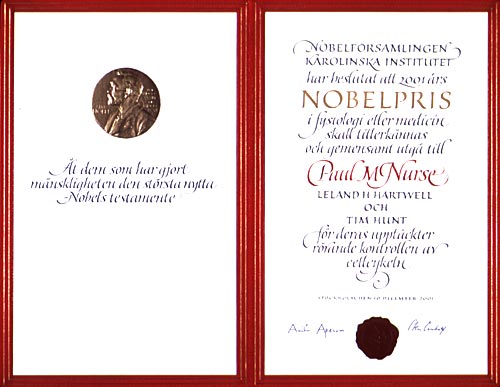 Åt dem som har gjort
mänskligheten den största nytta
Nobels testamente
NOBELFÖRSAMLINGEN
KAROLINSKA INSTITUTET
har beslutat att 2001 års
NOBELPRIS
i fysiologi eller medicin
skall tillerkännas
och gemensamt utgå till
Paul M Nurse
LELAND H HARTWELL
OCH
TIM HUNT
för deras upptäckter
rörande kontrollen av
cellcykeln
STOCKHOLM DEN 10 DECEMBER 2001